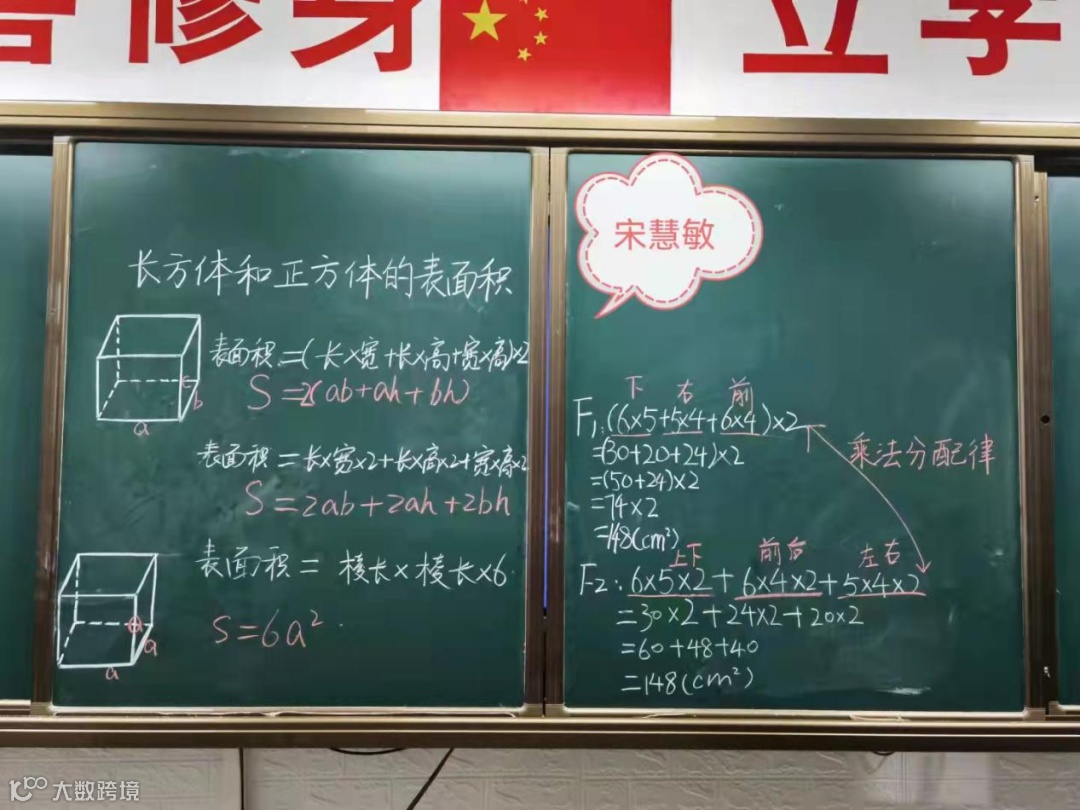 修身 立学
宋慧敏
长方体和正方体的表面积
表面积=(长×宽+长×高+宽×高)×2
S=2(ab+ah+bh)
b
a
表面积=长×宽×2+长×高×2+宽×高×2
S=2ab+2ah+2bh
表面积=棱长×棱长×6
S=6a²
a
a
a
下 右 前
F1:(6×5+5×4+6×4)×2
=(30+20+24)×2
=(50+24)×2
=74×2
=148(cm²)
乘法分配律
上下 前后 左右
F2:6×5×2+6×4×2+5×4×2
=30×2+24×2+20×2
=60+48+40
=148(cm²)
大数跨境